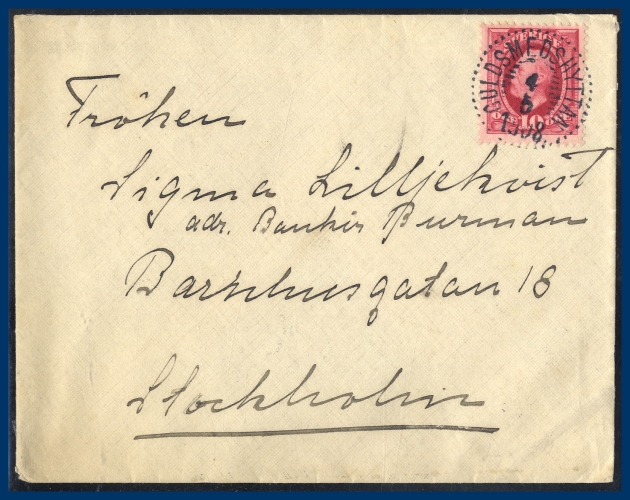 GULDSMEDSHYTTAN
4
5
1908
10
Fröken
Sigma Lilljekvist
adr. Bankir Burman
Barnhusgatan 18
Stockholm